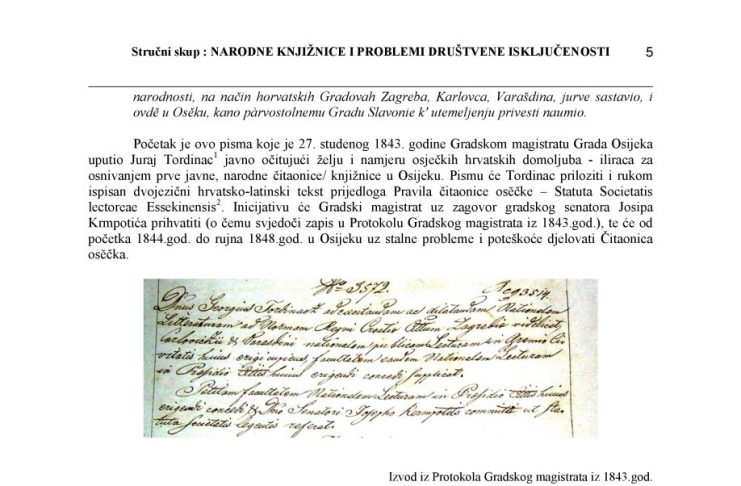 Stručni skup : NARODNE KNJIŽNICE I PROBLEMI DRUŠTVENE ISKLJUČENOSTI 5
narodnosti, na način horvatskih Gradovah Zagreba, Karlovca, Varašdina, jurve sastavio, i
ovdě u Osěku, kano pàrvostolnemu Gradu Slavonie k' utemeljenju privesti naumio.
Početak je ovo pisma koje je 27. studenog 1843. godine Gradskom magistratu Grada Osijeka
uputio Juraj Tordinac1 javno očitujući želju i namjeru osječkih hrvatskih domoljuba - iliraca za
osnivanjem prve javne, narodne čitaonice/ knjižnice u Osijeku. Pismu će Tordinac priloziti i rukom
ispisan dvojezični hrvatsko-latinski tekst prijedloga Pravila čitaonice osěčke – Statuta Societatis
lectoreae Essekinensis2. Inicijativu će Gradski magistrat uz zagovor gradskog senatora Josipa
Krmpotića prihvatiti (o čemu svjedoči zapis u Protokolu Gradskog magistrata iz 1843.god.), te će od
početka 1844.god. do rujna 1848.god. u Osijeku uz stalne probleme i poteškoće djelovati Čitaonica
osěčka.
No 3572.
Dnus Georgius Tordinacz ad excitandam ac dilatandam Nationalem
Litteraturam ad Normam Regni Croatio Cittum Zagrabia videlicet
Carlovchii & Varasdini nationalem publicam Lecturam in Gremio Ci
vitatis hujus erigi cupiens, facultatem eandem Nationalem Lecturam
in Præsidio Cittis hujus erigendi concedi supplicat.
Petitam facultatem Nationalem Lecturam in Præsidio Cittis hujus
erigendi concedi & Dno Senatori Josepho Kermpotits committi ut Sta
tuta Societatis legentis referat.
Izvod iz Protokola Gradskog magistrata iz 1843.god.